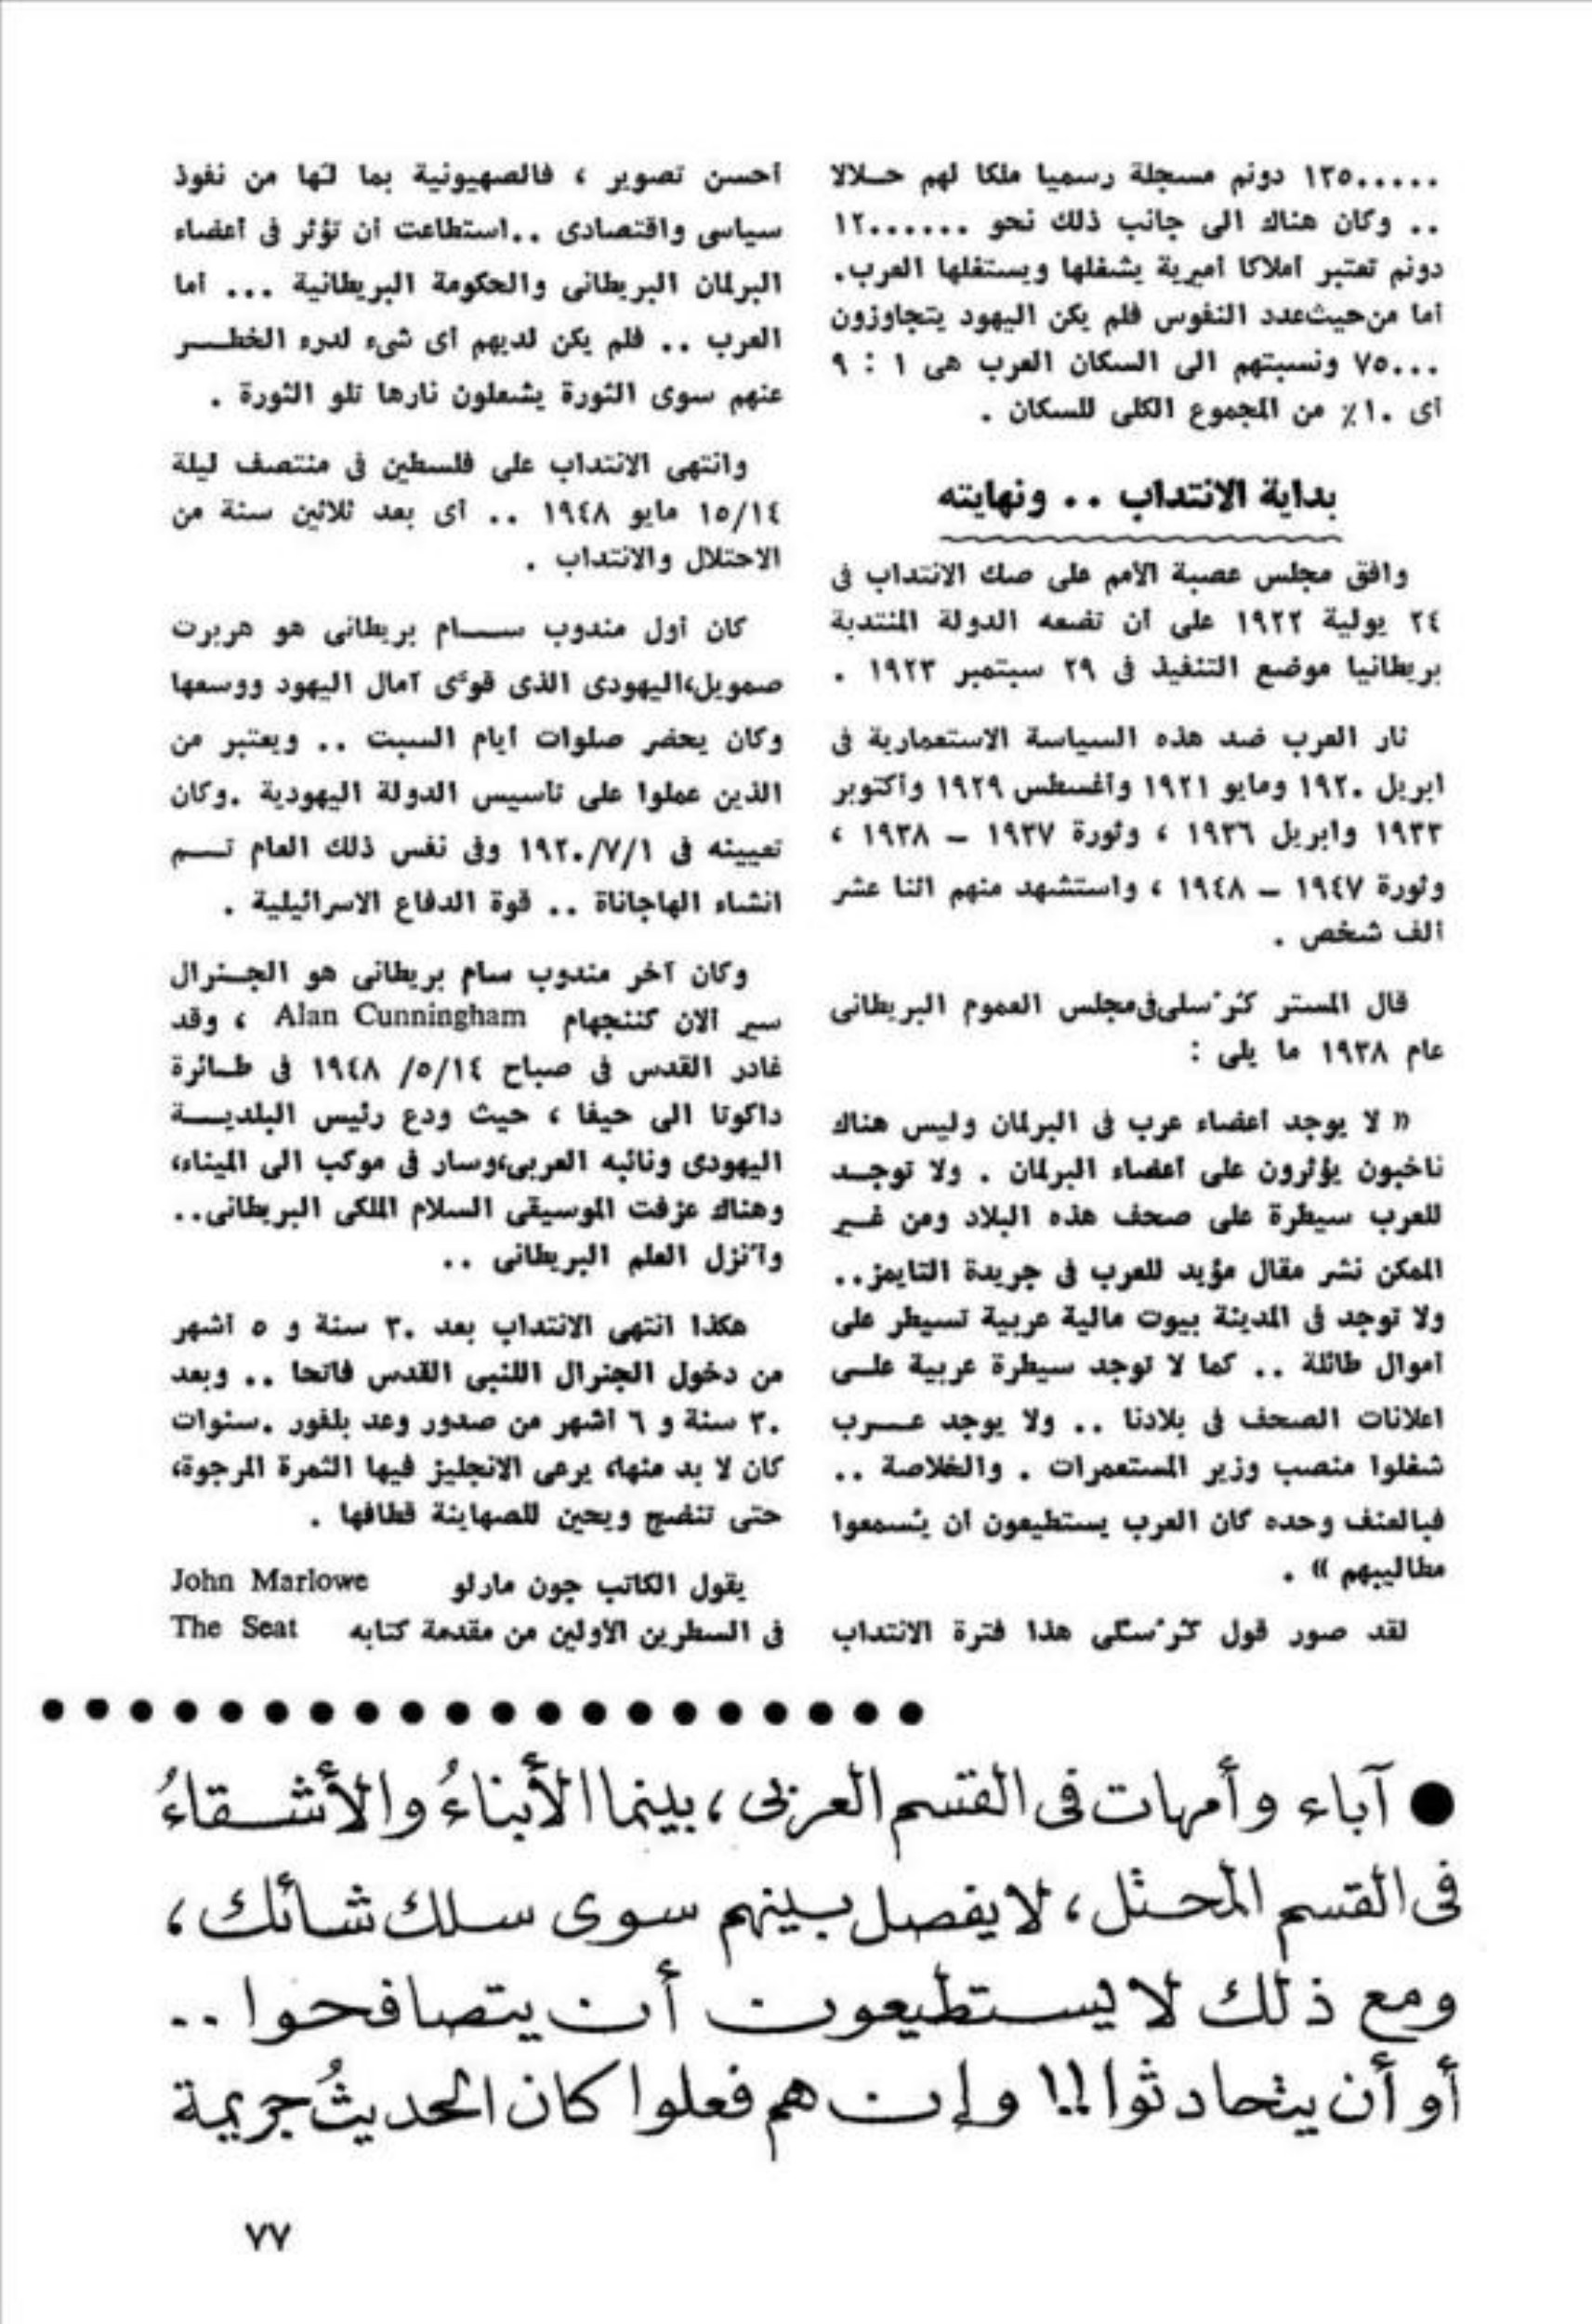 ١٣٥٠٠٠٠٠ دونم مسجلة رسميا ملكا لهم حــلالا
.. وكان هناك الى جانب ذلك نحو ١٢٠٠٠٠٠٠
دونم تعتبر املاكا اميرية يشغلها ويستغلها العرب.
أما من حيث عدد النفوس فلم يكن اليهود يتجاوزون
٧٥٠٠٠ ونسبتهم الى السكان العرب هى ١ : ٩
أى ١٠٪ من المجموع الكلى للسكان .
بداية الانتداب .. ونهايته
وافق مجلس عصبة الأمم على صك الانتداب فى
٢٤ يولية ١٩٢٢ على أن تضعه الدولة المنتدبة
بريطانيا موضع التنفيذ فى ٢٩ سبتمبر ١٩٢٣ .
ثار العرب ضد هذه السياسة الاستعمارية فى
ابريل ١٩٢٠ ومايو ١٩٢١ وأغسطس ١٩٢٩ وأكتوبر
١٩٣٣ وابريل ١٩٣٦ ، وثورة ١٩٣٧ – ١٩٣٨ ،
وثورة ١٩٤٧ – ١٩٤٨ ، واستشهد منهم اثنا عشر
ألف شخص .
قال المستر كُرُسلى فى مجلس العموم البريطانى
عام ١٩٣٨ ما يلى :
« لا يوجد أعضاء عرب فى البرلمان وليس هناك
ناخبون يؤثرون على أعضاء البرلمان . ولا توجــد
للعرب سيطرة على صحف هذه البلاد ومن غــير
الممكن نشر مقال مؤيد للعرب فى جريدة التايمز..
ولا توجد فى المدينة بيوت مالية عربية تسيطر على
أموال طائلة .. كما لا توجد سيطرة عربية علــى
اعلانات الصحف فى بلادنا .. ولا يوجد عــــرب
شغلوا منصب وزير المستعمرات . والخلاصة ..
فبالعنف وحده كان العرب يستطيعون أن يُسمعوا
مطاليبهم » .
لقد صور قول كُرُسلى هذا فترة الانتداب
أحسن تصوير ، فالصهيونية بما لها من نفوذ
سياسى واقتصادى ..استطاعت أن تؤثر فى أعضاء
البرلمان البريطانى والحكومة البريطانية ... أما
العرب .. فلم يكن لديهم أى شىء لدرء الخطــــر
عنهم سوى الثورة يشعلون نارها تلو الثورة .
وانتهى الانتداب على فلسطين فى منتصف ليلة
١٥/١٤ مايو ١٩٤٨ .. أى بعد ثلاثين سنة من
الاحتلال والانتداب .
كان أول مندوب ســـــام بريطانى هو هربرت
صمويل،اليهودى الذى قوّى آمال اليهود ووسعها
وكان يحضر صلوات أيام السبت .. ويعتبر من
الذين عملوا على تأسيس الدولة اليهودية .وكان
تعيينه فى ١٩٢٠/٧/١ وفى نفس ذلك العام تـــم
انشاء الهاجاناة .. قوة الدفاع الاسرائيلية .
وكان آخر مندوب سام بريطانى هو الجــنرال
سير آلان كننجهام Alan Cunningham ، وقد
غادر القدس فى صباح ١٤/٥/ ١٩٤٨ فى طــائرة
داكوتا الى حيفا ، حيث ودع رئيس البلديــــة
اليهودى ونائبه العربى،وسار فى موكب الى الميناء،
وهناك عزفت الموسيقى السلام الملكى البريطانى..
وأُنزل العلم البريطانى ..
هكذا انتهى الانتداب بعد ٣٠ سنة و ٥ أشهر
من دخول الجنرال اللنبى القدس فاتحا .. وبعد
٣٠ سنة و ٦ أشهر من صدور وعد بلفور .سنوات
كان لا بد منها، يرعى الانجليز فيها الثمرة المرجوة،
حتى تنضج ويحين للصهاينة قطافها .
يقول الكاتب جون مارلو John Marlowe
فى السطرين الأولين من مقدمة كتابه The Seat
● آباء وأمهات فى القسم العربى ، بينما الأبناءُ والأشـــقاءُ
فى القسم المحتل ، لا يفصل بينهم سوى سلك شائك ،
ومع ذلك لا يستطيعون أن يتصافحوا ..
أو أن يتحادثوا !! وإن هم فعلوا كان الحديثُ جريمة
٧٧